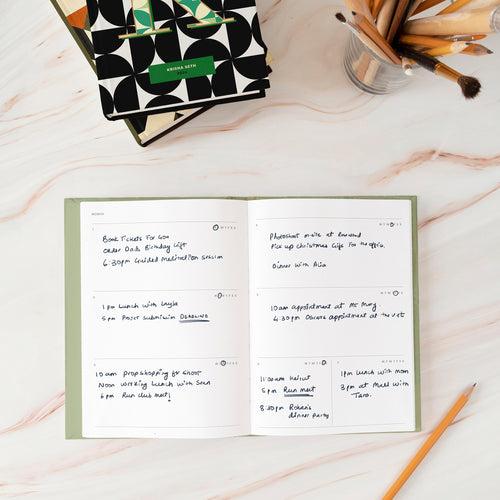 K
KRISHA SETH
MONTH
MTWTFSS
Book Tickets For Goa
Order Dad's Birthday Gift
6:30pm Guided Meditation session
1pm Lunch with Layla
5pm Paper Submission DEADLINE
10am prop shopping for Shoot
Noon Working Lunch with Sean
6pm Run club meet!
MTWTFSS
Photoshoot on-site at
Pick up Christmas Gifts for the office.
Dinner with Alia
10am appointment at Mt Mary.
4:30pm Oscar's appointment at the vet
11:00am Haircut
5pm Run meet
8:30pm Rohan's
dinner party
1pm Lunch with mom
3pm at Mall with
Tara.